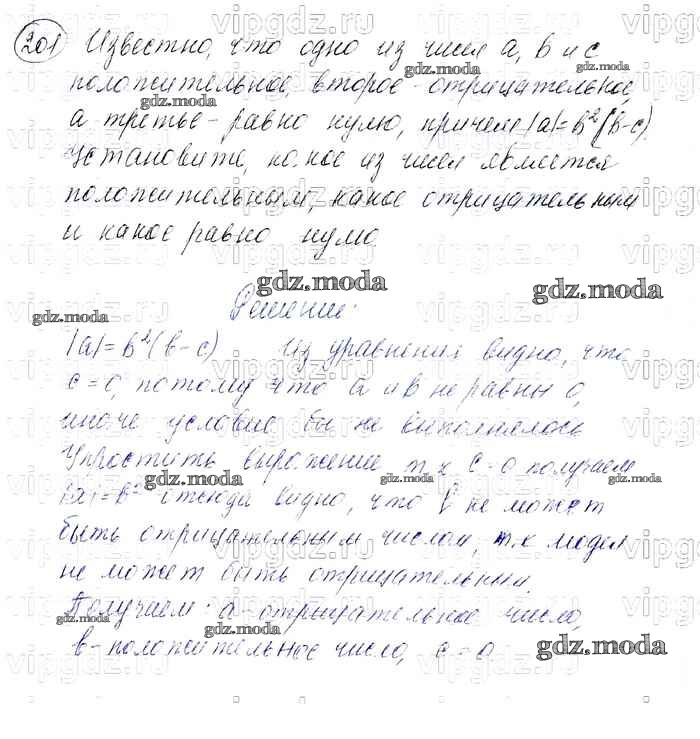 201 Известно, что одно из чисел a, b и c
положительное, второе - отрицательное,
а третье - равно нулю, причем |a|=b²(b-c)
Установите, какое из чисел является
положительным, какое отрицательным
и какое равно нулю
Решение:
|a|=b²(b-c) Из уравнения видно, что
c=0, потому что a и b не равны 0,
иначе условие бы не выполнялось
Упростить выражение т.к c=0 получаем
|a|=b³ отсюда видно, что b не может
быть отрицательным числом, т.к модел
не может быть отрицательным.
Получаем: a-отрицательное число,
b-положительное число, c=0
gdz.moda
vipgdz.ru